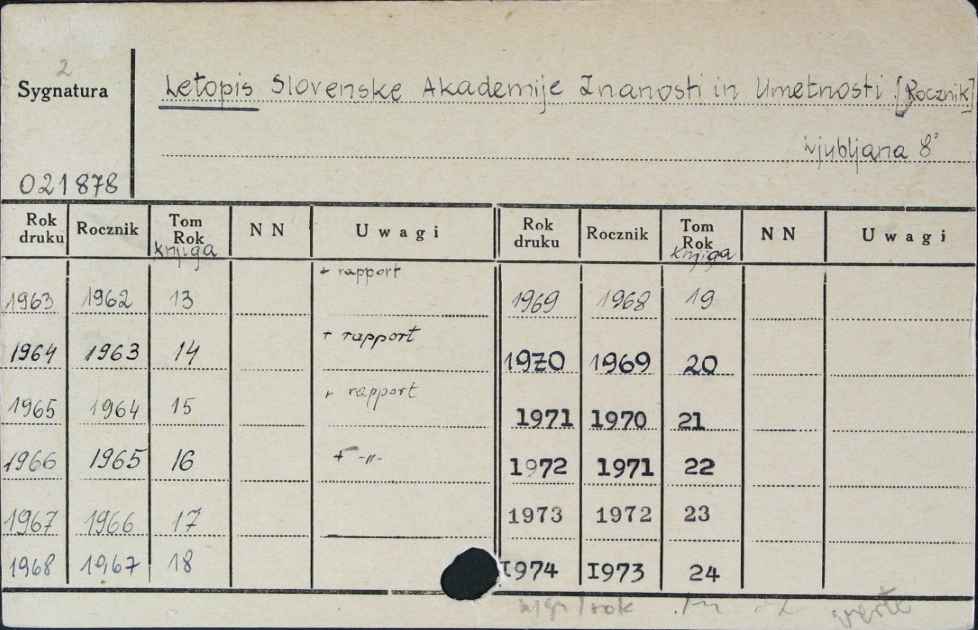 2
Sygnatura
Letopis Slovenske Akademije Znanosti in Umetnosti. [Rocznik]
Ljubljana 8°
021878
Rok druku Rocznik Tom Rok knjiga NN Uwagi Rok druku Rocznik Tom Rok knjiga NN Uwagi
1963 1962 13 + rapport 1969 1968 19
1964 1963 14 + rapport 1970 1969 20
1965 1964 15 + rapport 1971 1970 21
1966 1965 16 + -"- 1972 1971 22
1967 1966 17 1973 1972 23
1968 1967 18 I974 I973 24
rok verte